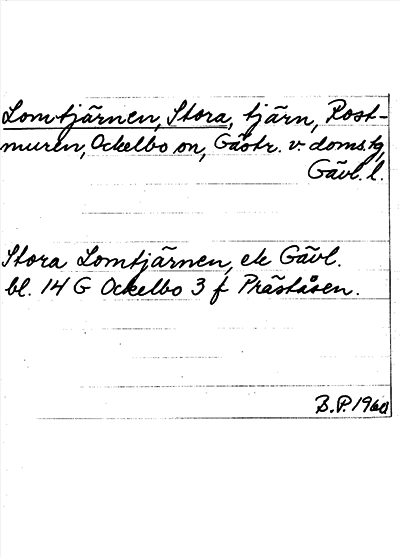 Lomtjärnen, Stora, tjärn, Rost-
muren, Ockelbo sn, Gästr. v. doms.tg,
Gävl. l.
Stora Lomtjärnen, ek Gävl.
bl. 14 G Ockelbo 3 f Präståsen.
B.P. 1960